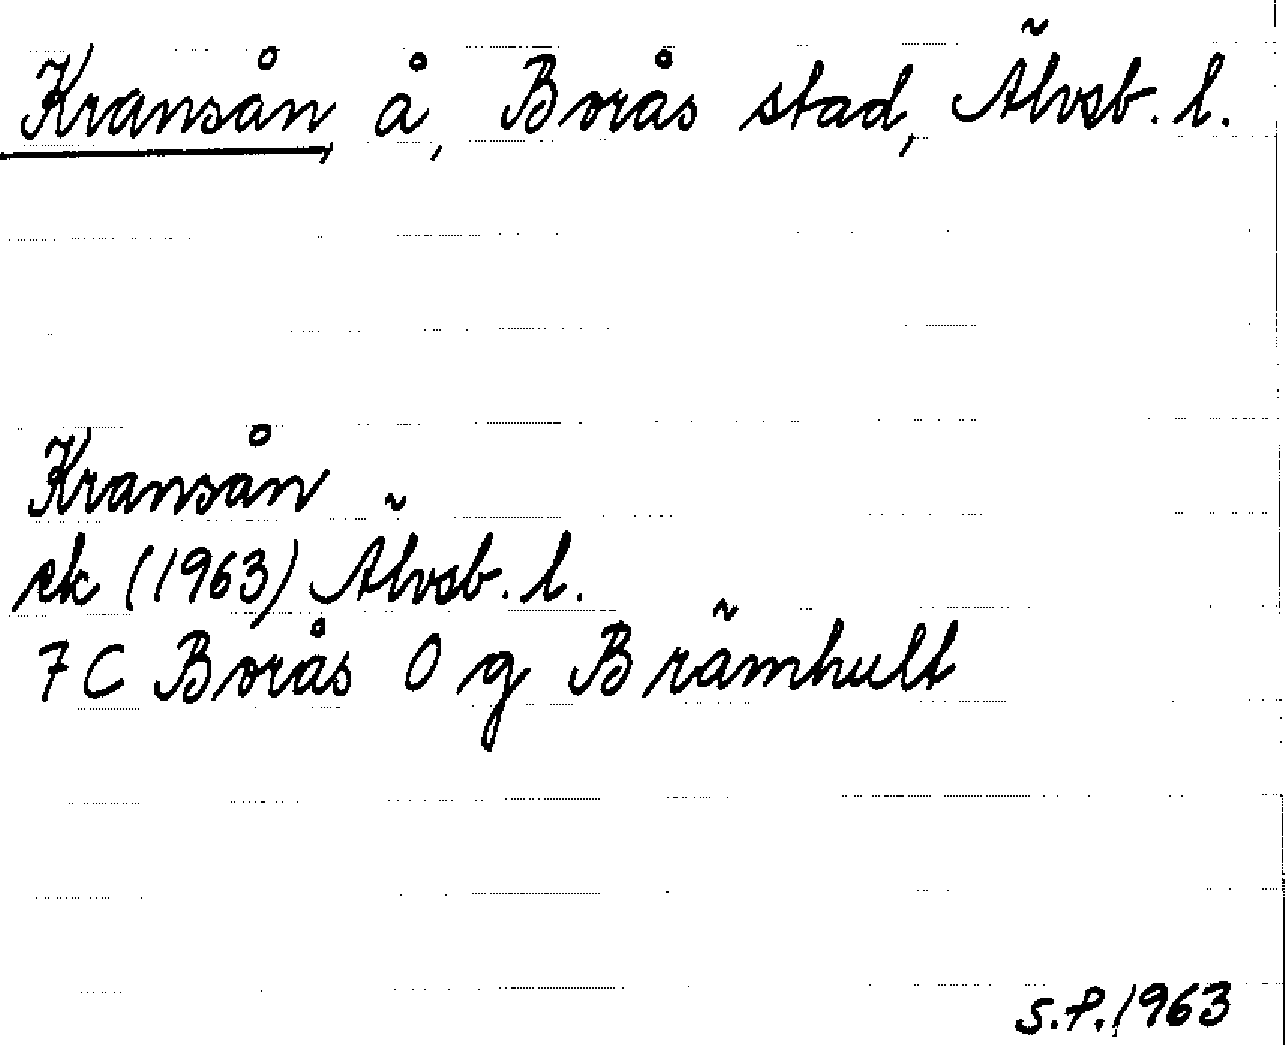 Kransån, å, Borås stad, Älvsb. l.
Kransån
ek (1963) Älvsb. l.
7 C Borås O g Brämhult
S.P. 1963